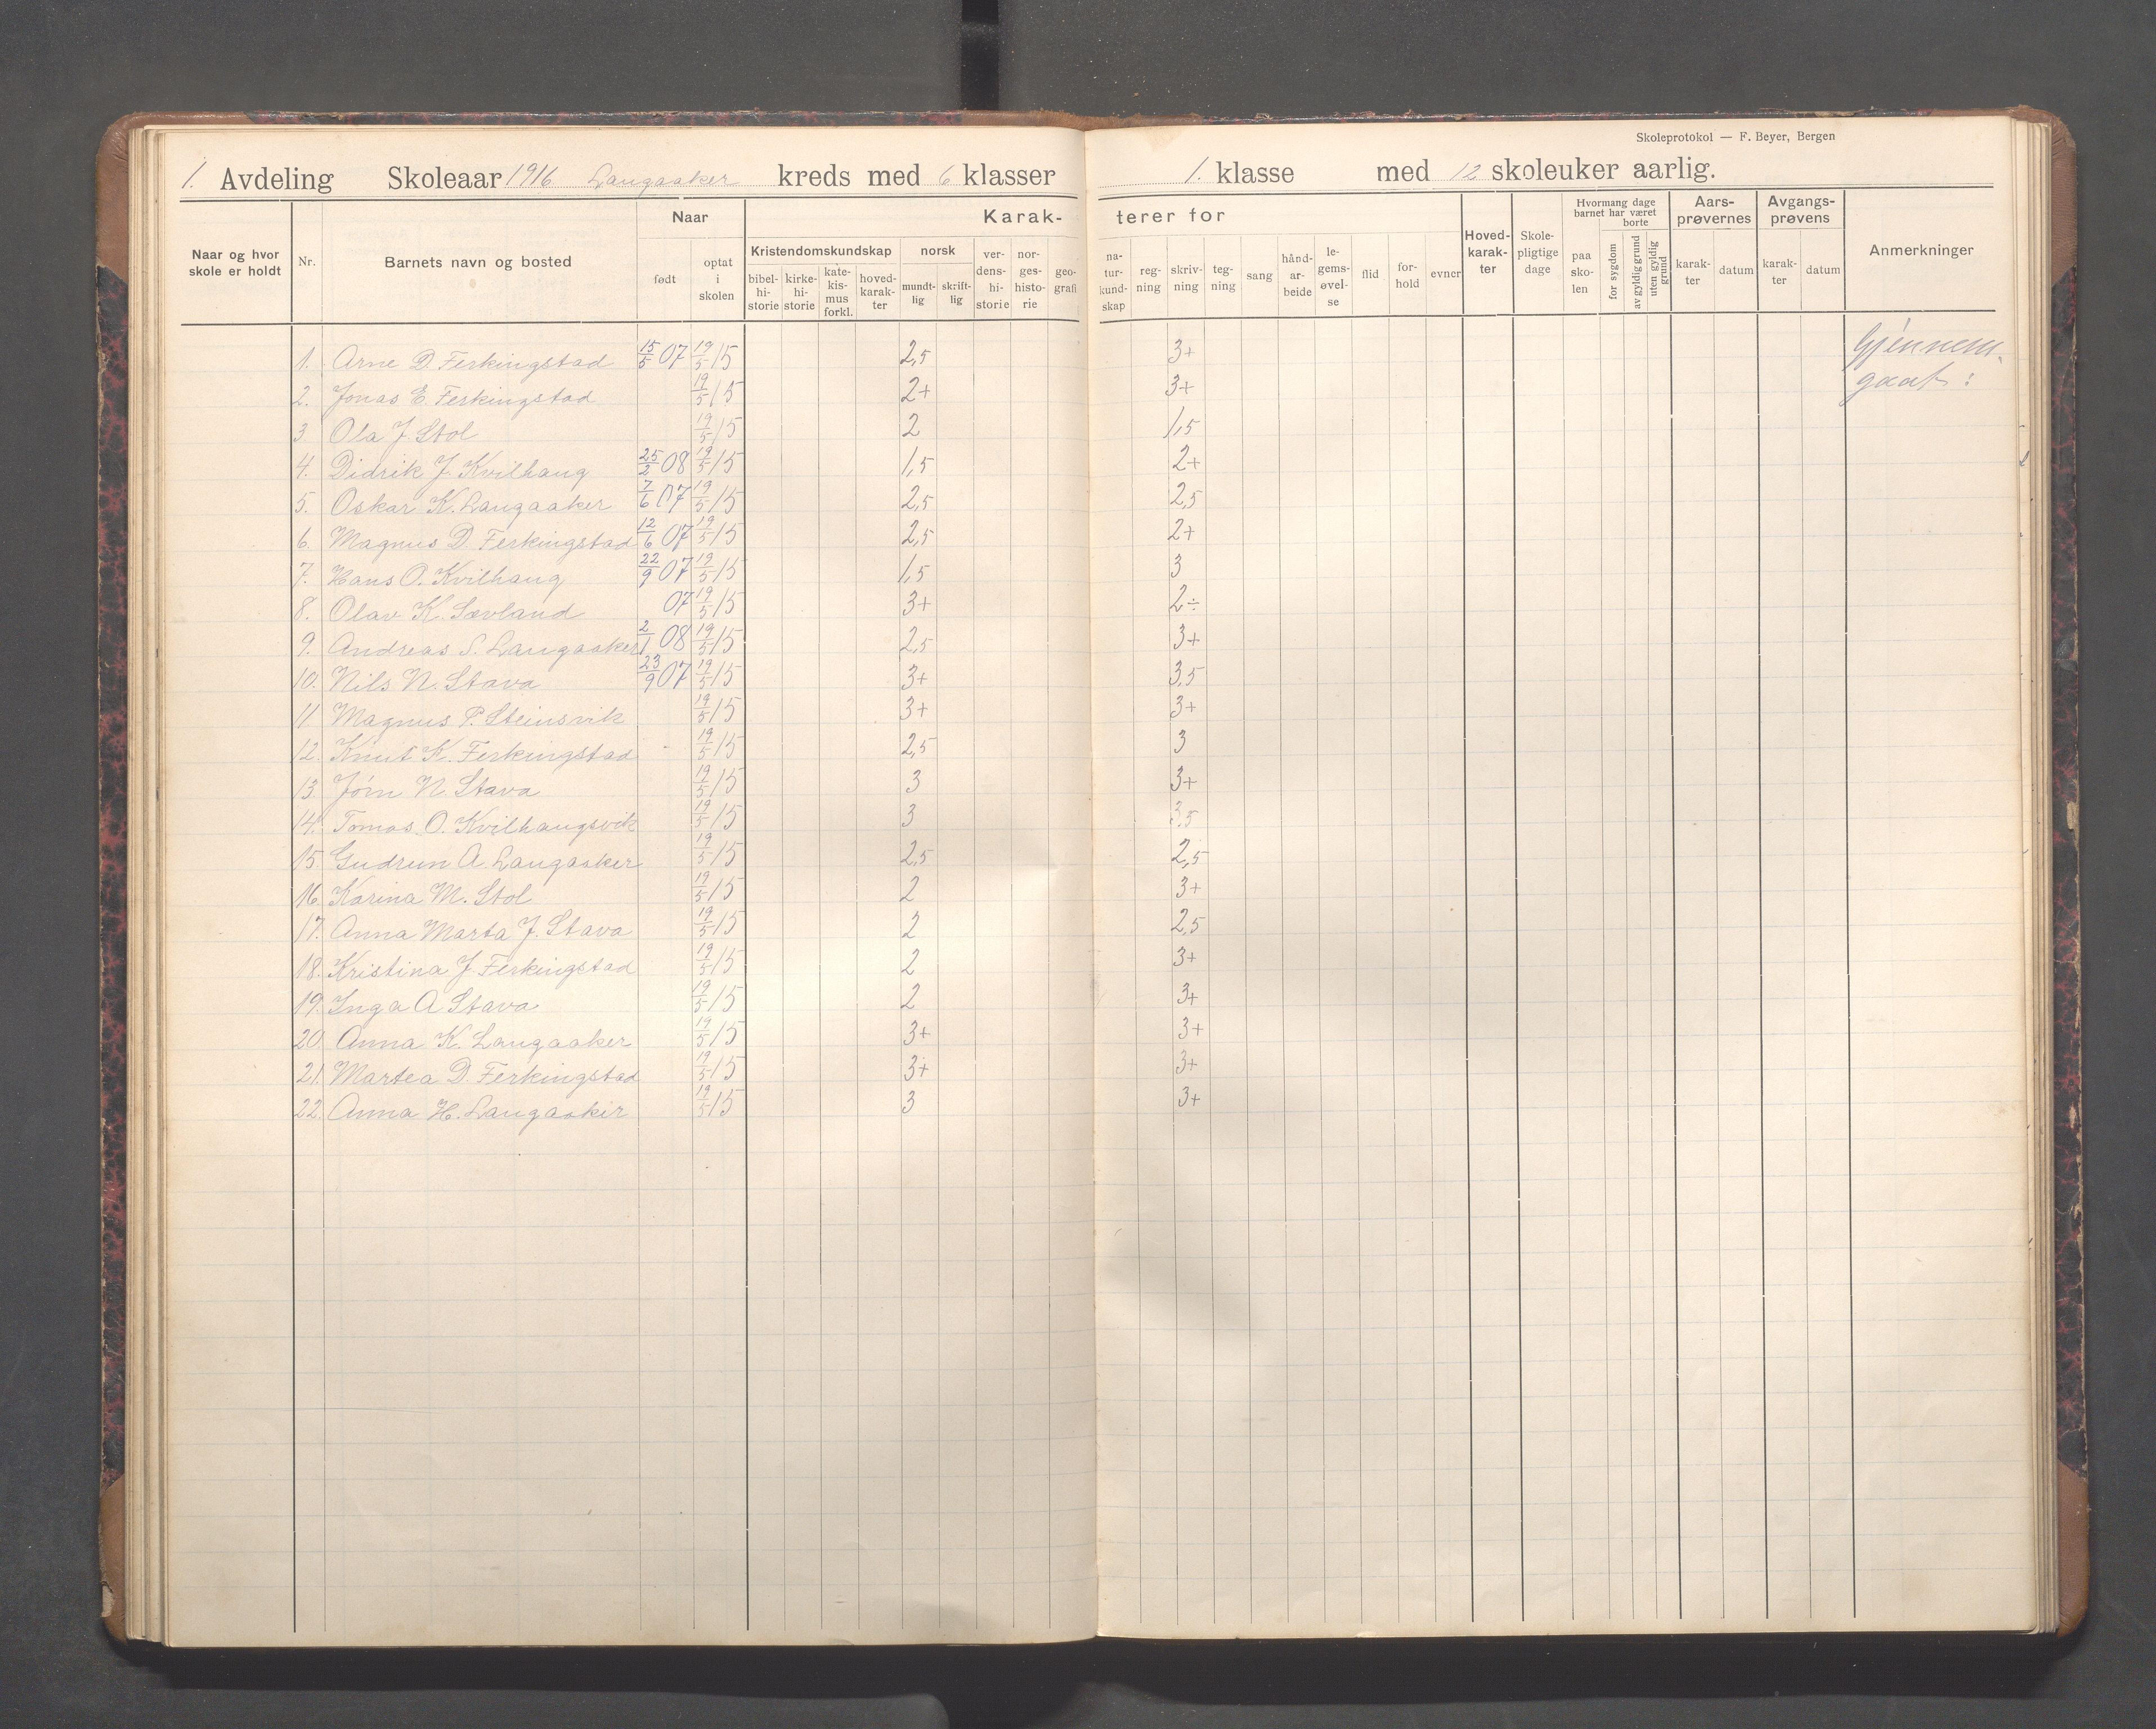 Skoleprotokol — F. Beyer, Bergen
1. Avdeling Skoleaar 1916 Langaaker kreds med 6 klasser 1. klasse med 12 skoleuker aarlig.
Naar og hvor skole er holdt Nr. Barnets navn og bosted Naar født optat i skolen Karakterer for Kristendomskundskap bibel-hi-storie kirke-hi-storie kate-kis-mus forkl. hoved-karak-ter norsk mundt-lig skrift-lig ver-dens-hi-storie nor-ges-histo-rie geo-grafi na-tur-kund-skap reg-ning skriv-ning teg-ning sang hånd-ar-beide le-gems-øvel-se flid for-hold evner Hoved-karak-ter Skole-pligtige dage Hvormang dage barnet har været paa sko-len borte for sygdom av gyldig grund uten gyldig grund Aars-prøvernes karak-ter datum Avgangs-prøvens karak-ter datum Anmerkninger
1. Arne D. Ferkingstad 15/5 07 19/5 15 2,5 3+ Gjennem-
2. Jonas E. Ferkingstad 19/5 15 2+ 3+ gaat:
3. Ola J. Stol 19/5 15 2 1,5
4. Didrik J. Kvilhaug 25/2 08 19/5 15 1,5 2+
5. Oskar K. Langaaker 7/6 07 19/5 15 2,5 2,5
6. Magnus D. Ferkingstad 12/6 07 19/5 15 2,5 2+
7. Hans O. Kvilhaug 22/9 07 19/5 15 1,5 3
8. Olav K. Sævland 07 19/5 15 3+ 2÷
9. Andreas S. Langaaker 2/1 08 19/5 15 2,5 3+
10. Nils N. Stava 23/9 07 19/5 15 3+ 3,5
11. Magnus P. Steinsvik 19/5 15 3+ 3+
12. Knut K. Ferkingstad 19/5 15 2,5 3
13. Jørn N. Stava 19/5 15 3 3+
14. Tomas O. Kvilhaugsvik 19/5 15 3 3,5
15. Gudrun A. Langaaker 19/5 15 2,5 2,5
16. Karina M. Stol 19/5 15 2 3+
17. Anna Marta J. Stava 19/5 15 2 2,5
18. Kristina J. Ferkingstad 19/5 15 2 3+
19. Inga A. Stava 19/5 15 2 3+
20. Anna K. Langaaker 19/5 15 3+ 3+
21. Martea D. Ferkingstad 19/5 15 3+ 3+
22. Anna H. Langaaker 19/5 15 3 3+